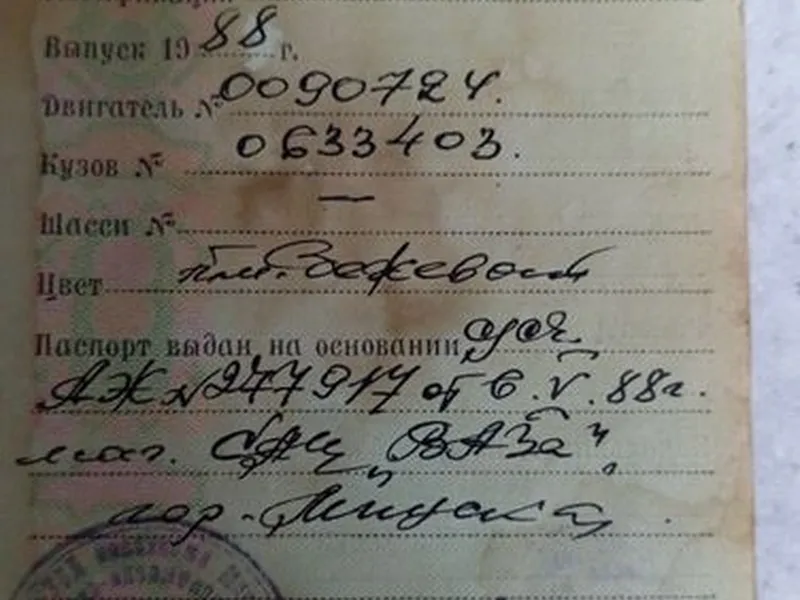 Выпуск 1988 г.
Двигатель № 0090724.
Кузов № 0633403.
Шасси № —
Цвет бежевый
Паспорт выдан на основании
АЖ № 247917 от 6.V.88г.
маг. САЦ „ВАЗа",
гор. Минска.